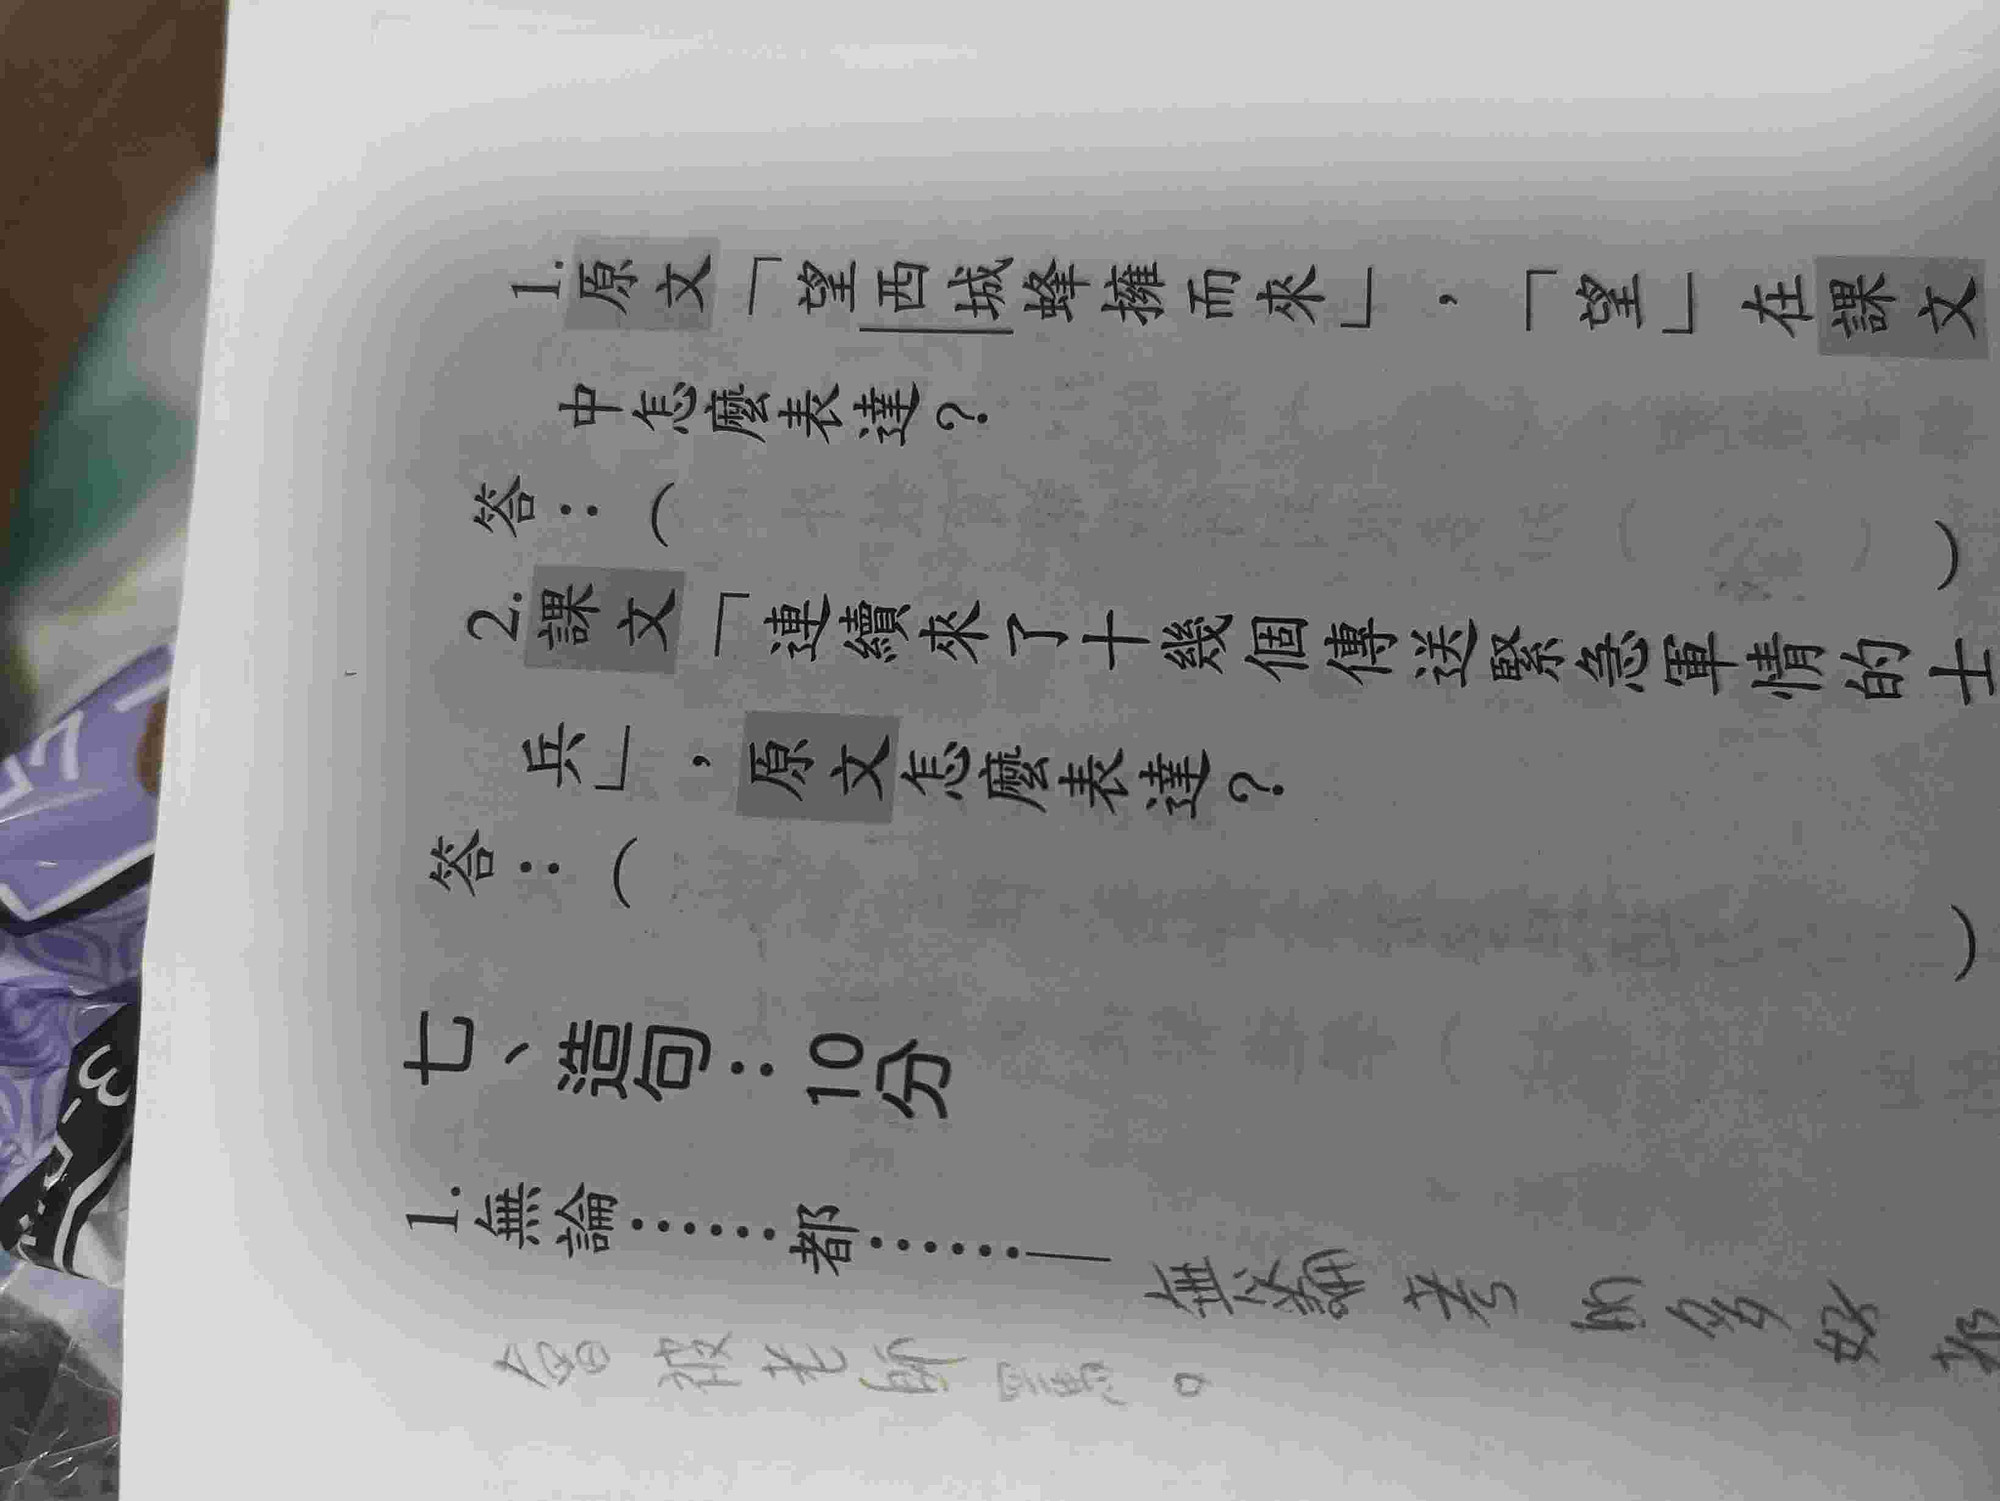 1.原文「望西城蜂擁而來」，「望」在課文
中怎麼表達？
答：（　　　）
2.課文「連續來了十幾個傳送緊急軍情的士
兵」，原文怎麼表達？
答：（　　　）
七、造句：10分
1.無論……都……—
無論考的多好都
會被老師